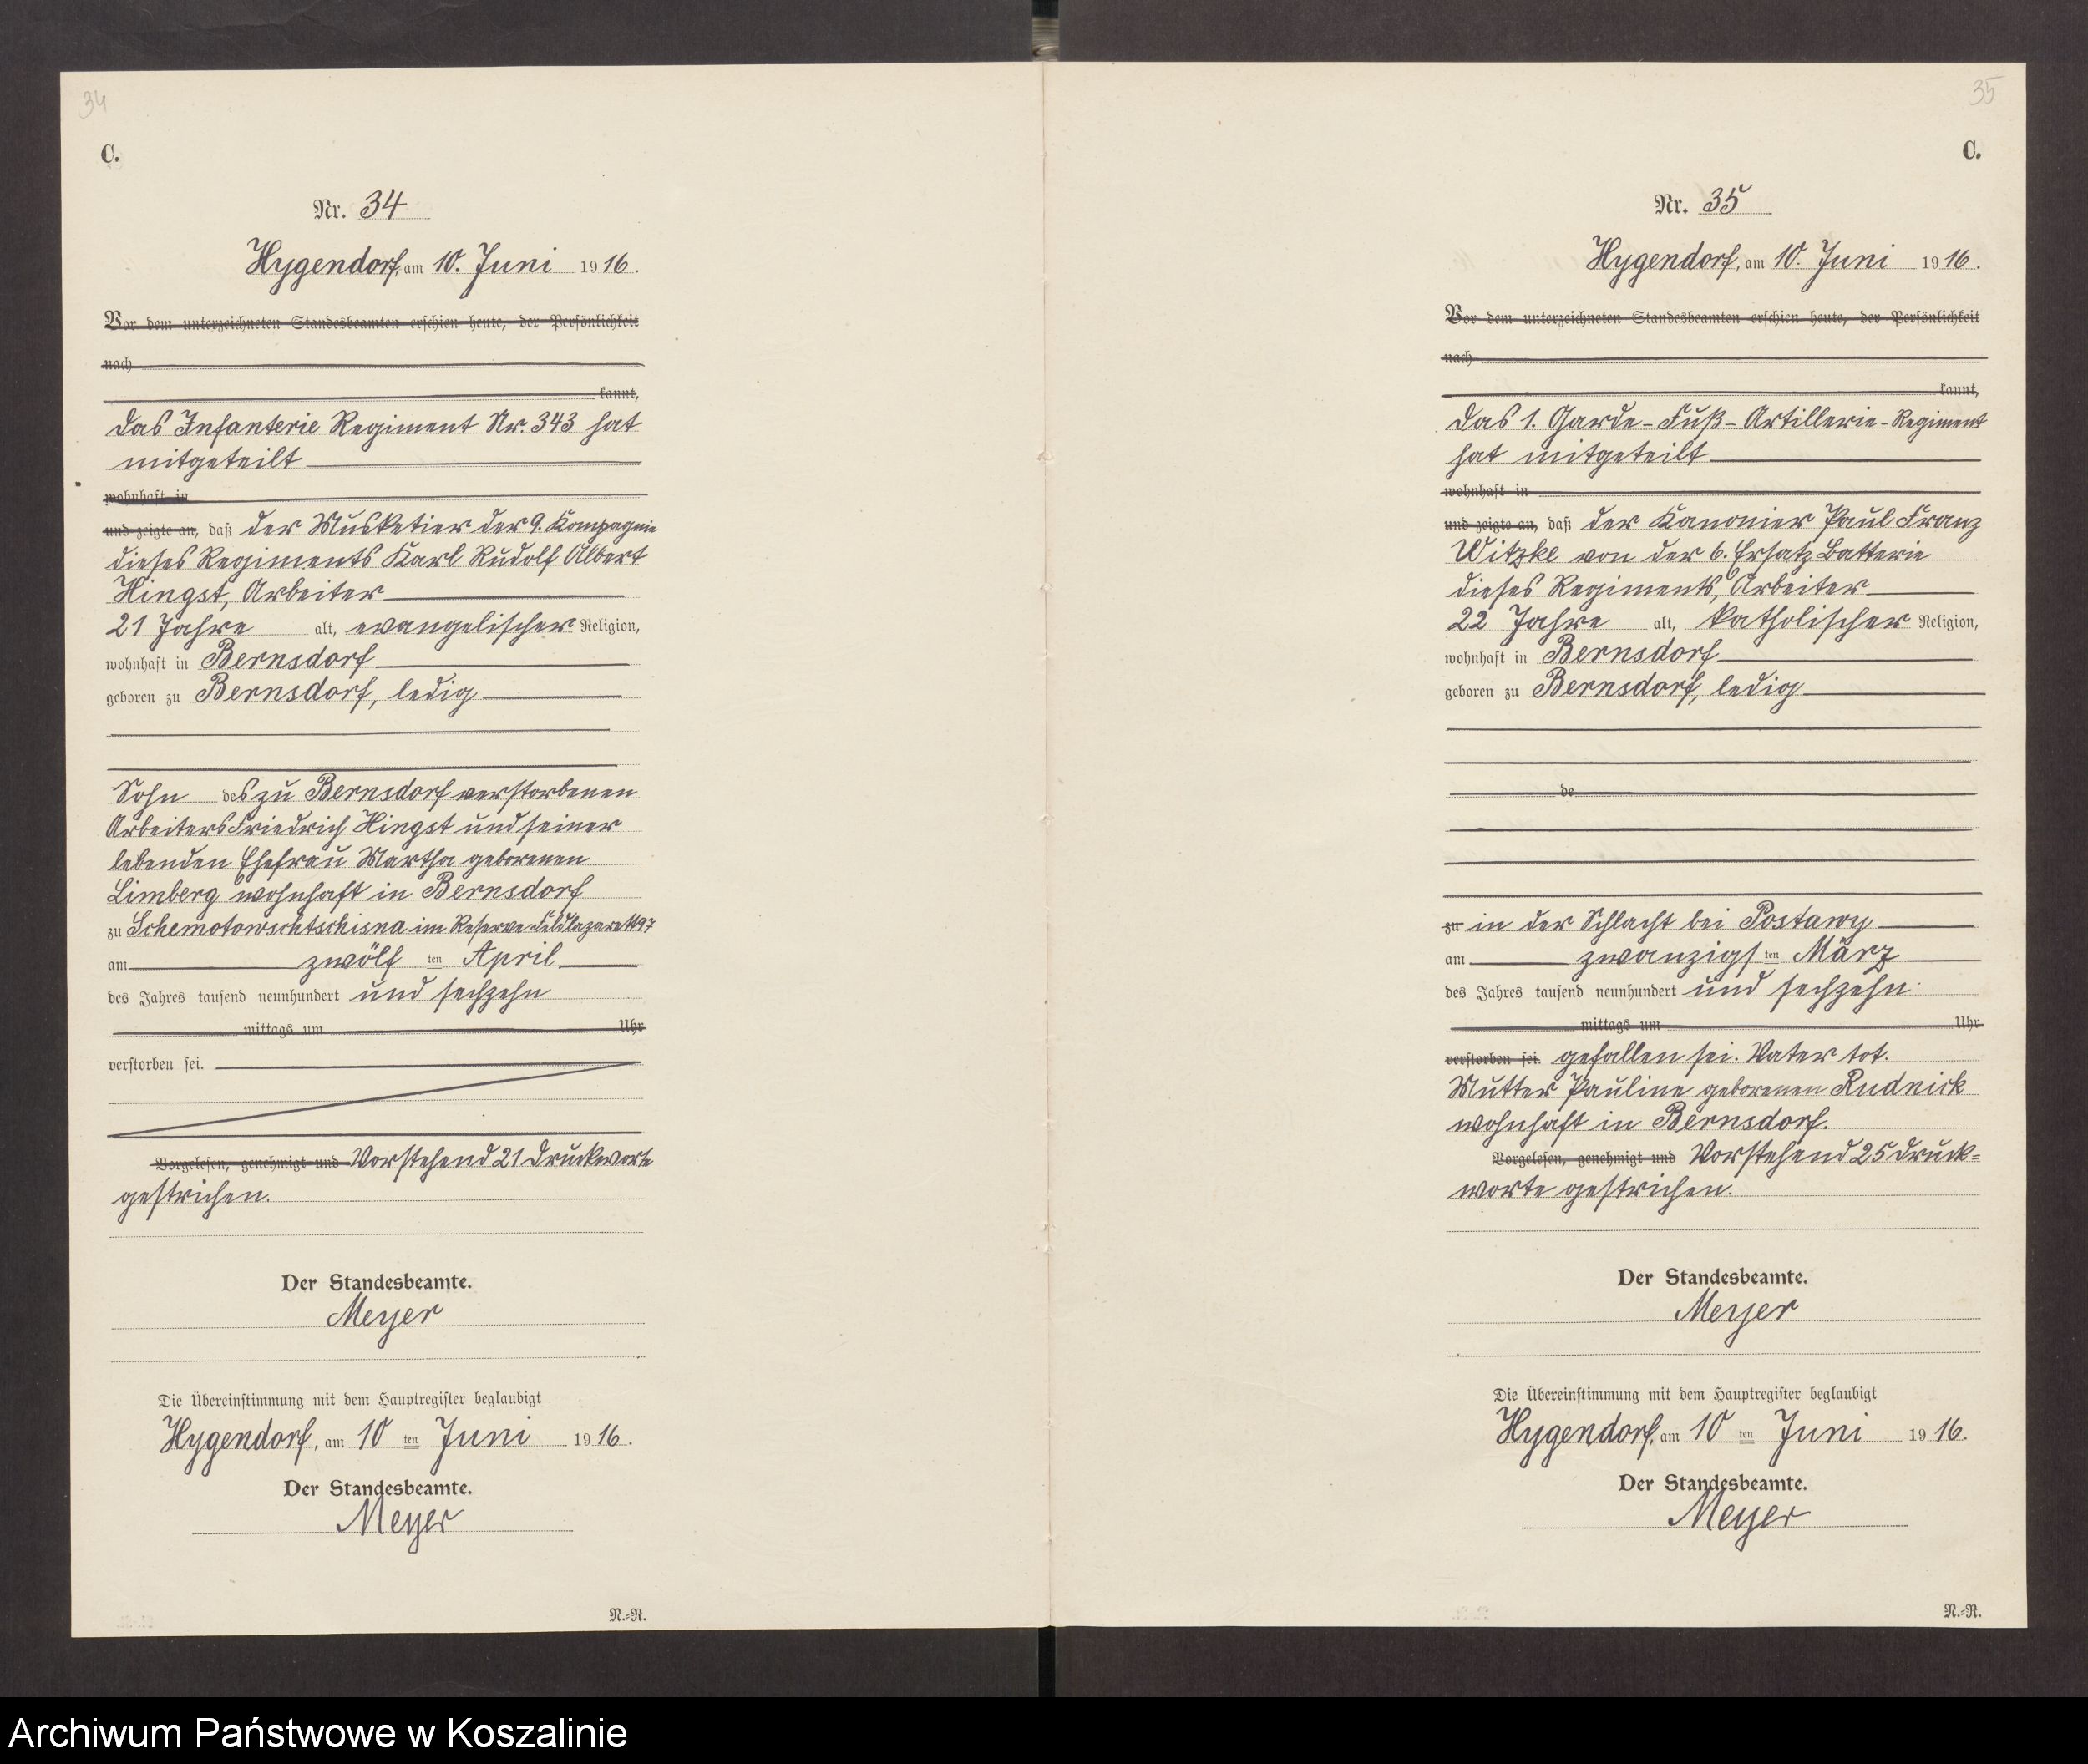 34
C.
Nr. 34
Hygendorf, am 10. Juni 1916.
Vor dem unterzeichneten Standesbeamten erschien heute, der Persönlichkeit
nach
kannt,
das Infanterie Regiment Nr. 343 hat
mitgeteilt
wohnhaft in
und zeigte an, daß der Musketier der 9. Kompagnie
dieses Regiments Karl Rudolf Albert
Hingst, Arbeiter
21 Jahre alt, evangelischer Religion,
wohnhaft in Bernsdorf
geboren zu Bernsdorf, ledig
Sohn des zu Bernsdorf verstorbenen
Arbeiters Friedrich Hingst und seiner
lebenden Ehefrau Martha geborenen
Limberg wohnhaft in Bernsdorf
zu Schemotowschtschisna im Reserve Feldlazarett 97
am zwölf ten April
des Jahres tausend neunhundert und sechzehn
mittags um Uhr
verstorben sei.
Vorgelesen, genehmigt und Vorstehend 21 Druckworte
gestrichen.
Der Standesbeamte.
Meyer
Die Übereinstimmung mit dem Hauptregister beglaubigt
Hygendorf, am 10 ten Juni 1916.
Der Standesbeamte.
Meyer
N.-R.
35
C.
Nr. 35
Hygendorf, am 10. Juni 1916.
Vor dem unterzeichneten Standesbeamten erschien heute, der Persönlichkeit
nach
kannt,
das 1. Garde-Fuß-Artillerie-Regiment
hat mitgeteilt
wohnhaft in
und zeigte an, daß der Kanonier Paul Franz
Witzke von der 6. Ersatz Batterie
dieses Regiments, Arbeiter
22 Jahre alt, katholischer Religion,
wohnhaft in Bernsdorf
geboren zu Bernsdorf, ledig
de
zu in der Schlacht bei Postawy
am zwanzigs ten März
des Jahres tausend neunhundert und sechzehn
mittags um Uhr
verstorben sei. gefallen sei. Vater tot.
Mutter Pauline geborenen Rudnick
wohnhaft in Bernsdorf.
Vorgelesen, genehmigt und Vorstehend 25 Druck=
worte gestrichen.
Der Standesbeamte.
Meyer
Die Übereinstimmung mit dem Hauptregister beglaubigt
Hygendorf, am 10 ten Juni 1916.
Der Standesbeamte.
Meyer
N.-R.
Archiwum Państwowe w Koszalinie